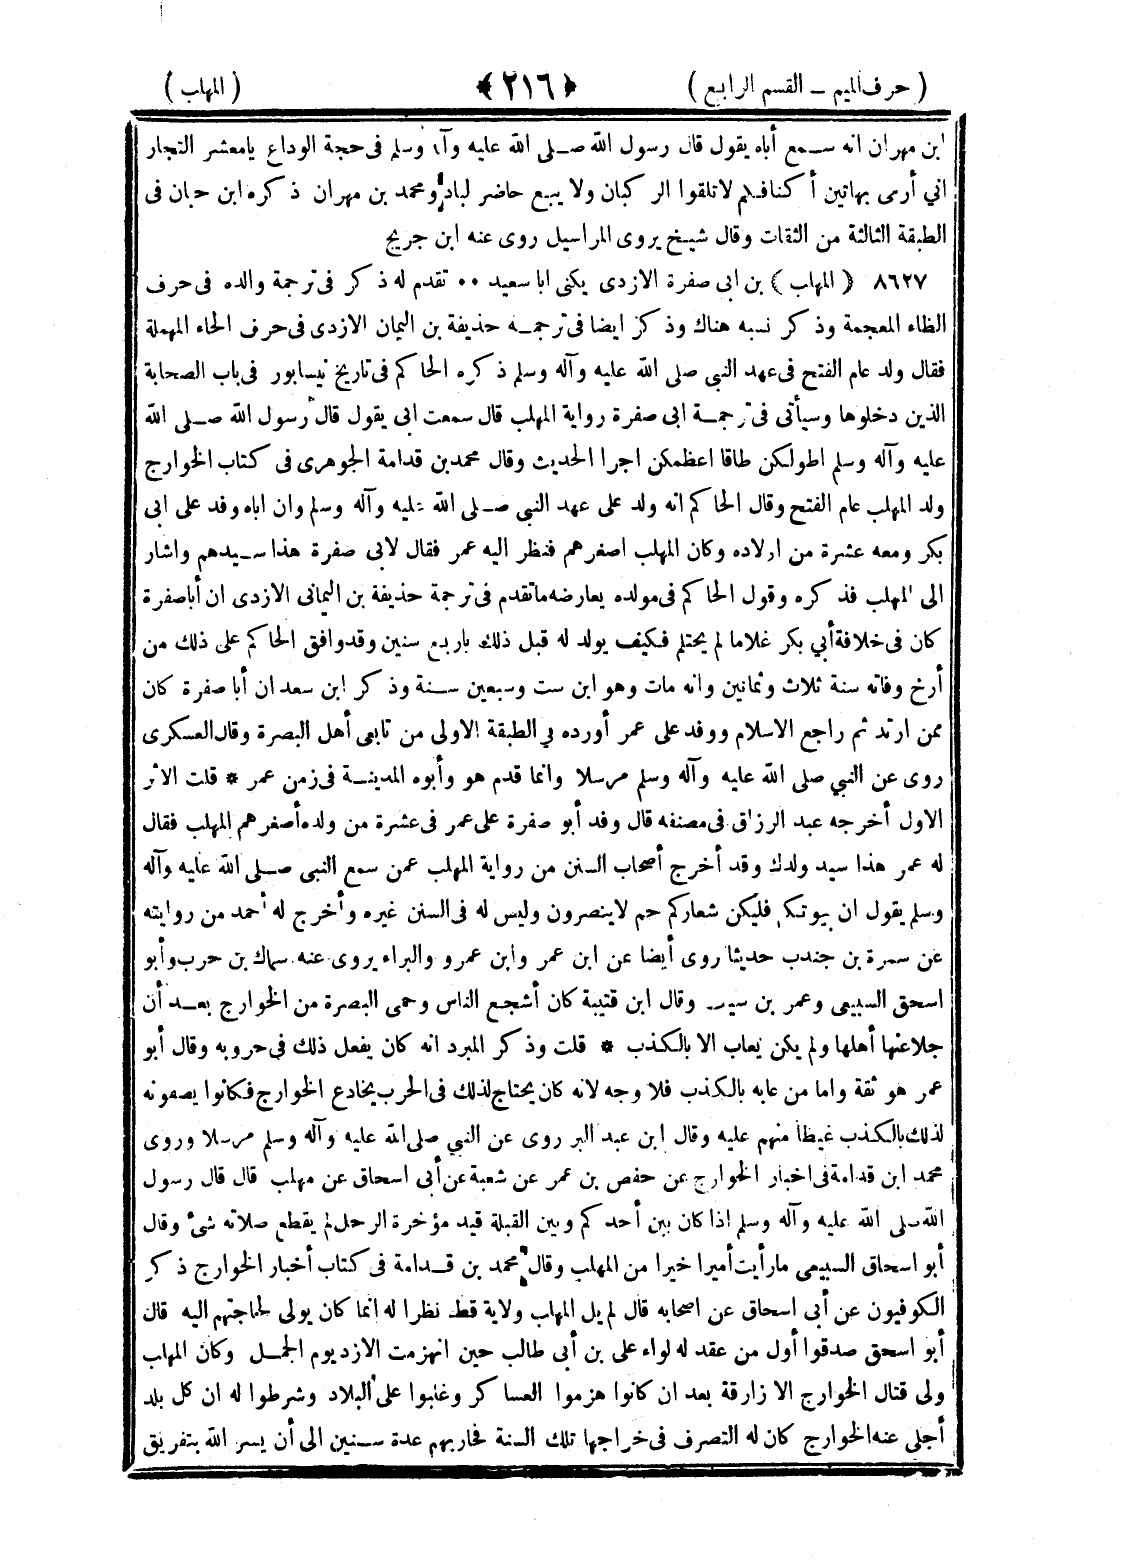 ( حرف الميم – القسم الرابع ) ﴿ ٢١٦ ﴾ ( المهلب )
ابن مهران انه سمع أباه يقول قال رسول الله صلى الله عليه وآله وسلم فى حجة الوداع يامعشر التجار
انى أرمى بهاتين أكتافكم لاتلقوا الركبان ولا يبيع حاضر لباد ومحمد بن مهران ذكره ابن حبان فى
الطبقة الثالثة من الثقات وقال شيخ يروى المراسيل روى عنه ابن جريج
٨٦٢٧ ( المهلب ) بن ابى صفرة الازدى يكنى ابا سعيد ٠٠ تقدم له ذكر فى ترجمة والده فى حرف
الظاء المعجمة وذكر نسبه هناك وذكر ايضا فى ترجمة حذيفة بن اليمان الازدى فى حرف الحاء المهملة
فقال ولد عام الفتح فى عهد النبى صلى الله عليه وآله وسلم ذكره الحاكم فى تاريخ نيسابور فى باب الصحابة
الذين دخلوها وسيأتى فى ترجمة ابى صفرة رواية المهلب قال سمعت ابى يقول قال رسول الله صلى الله
عليه وآله وسلم اطولكن طاقا اعظمكن اجرا الحديث وقال محمد بن قدامة الجوهرى فى كتاب الخوارج
ولد المهلب عام الفتح وقال الحاكم انه ولد على عهد النبى صلى الله عليه وآله وسلم وان اباه وفد على ابى
بكر ومعه عشرة من اولاده وكان المهلب اصغرهم فنظر اليه عمر فقال لابى صفرة هذا سيدهم واشار
الى المهلب فذكره وقول الحاكم فى مولده يعارضه ماتقدم فى ترجمة حذيفة بن اليمانى الازدى ان أباصفرة
كان فى خلافة أبي بكر غلاما لم يحتلم فكيف يولد له قبل ذلك باربع سنين وقدوافق الحاكم على ذلك من
أرخ وفاته سنة ثلاث وثمانين وانه مات وهو ابن ست وسبعين سنة وذكر ابن سعد ان أبا صفرة كان
ممن ارتد ثم راجع الاسلام ووفد على عمر أورده في الطبقة الاولى من تابعى أهل البصرة وقال العسكرى
روى عن النبي صلى الله عليه وآله وسلم مرسلا وانما قدم هو وأبوه المدينة فى زمن عمر * قلت الاثر
الاول أخرجه عبد الرزاق فى مصنفه قال وفد أبو صفرة على عمر فى عشرة من ولده أصغرهم المهلب فقال
له عمر هذا سيد ولدك وقد أخرج أصحاب السنن من رواية المهلب عمن سمع النبى صلى الله عليه وآله
وسلم يقول ان بيوتكم فليكن شعاركم حم لاينصرون وليس له فى السنن غيره وأخرج له أحمد من روايته
عن سمرة بن جندب حديثا روى أيضا عن ابن عمر وابن عمرو والبراء يروى عنه سماك بن حرب وأبو
اسحق السبيعى وعمر بن سيف وقال ابن قتيبة كان أشجع الناس وحمى البصرة من الخوارج بعد أن
جلاعنها أهلها ولم يكن يعاب الا بالكذب * قلت وذكر المبرد انه كان يفعل ذلك فى حروبه وقال أبو
عمر هو ثقة واما من عابه بالكذب فلا وجه لانه كان يحتاج لذلك فى الحرب يخادع الخوارج فكانوا يصفونه
لذلك بالكذب غيظا منهم عليه وقال ابن عبد البر روى عن النبي صلى الله عليه وآله وسلم مرسلا وروى
محمد ابن قدامة فى اخبار الخوارج عن حفص بن عمر عن شعبة عن أبى اسحاق عن مهلب قال قال رسول
الله صلى الله عليه وآله وسلم اذا كان بين أحدكم وبين القبلة قيد مؤخرة الرحل لم يقطع صلاته شئ وقال
أبو اسحاق السبيعى مارأيت أميرا خيرا من المهلب وقال محمد بن قدامة فى كتاب أخبار الخوارج ذكر
الكوفيون عن أبى اسحاق عن اصحابه قال لم يل المهلب ولاية قط نظرا له انما كان يولى لحاجتهم اليه قال
أبو اسحق صدقوا أول من عقد له لواء على بن أبى طالب حين انهزمت الازد يوم الجمل وكان المهلب
ولى قتال الخوارج الازارقة بعد ان كانوا هزموا العساكر وغلبوا على البلاد وشرطوا له ان كل بلد
أجلى عنه الخوارج كان له التصرف فى خراجها تلك السنة فحاربهم عدة سنين الى أن يسر الله بتفريق